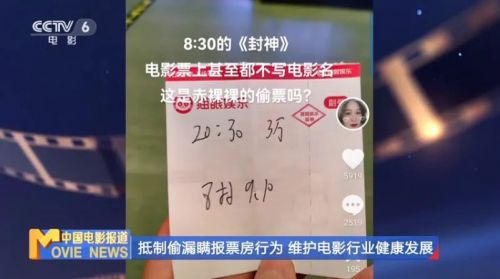 CCTV 6
电影
8:30的《封神》
电影票上甚至都不写电影名
这是赤裸裸的偷票吗？
猫眼娱乐
副
20:30 3厅
8排 9.10
5919
2519
195
中国电影报道
MOVIE NEWS
抵制偷漏瞒报票房行为 维护电影行业健康发展